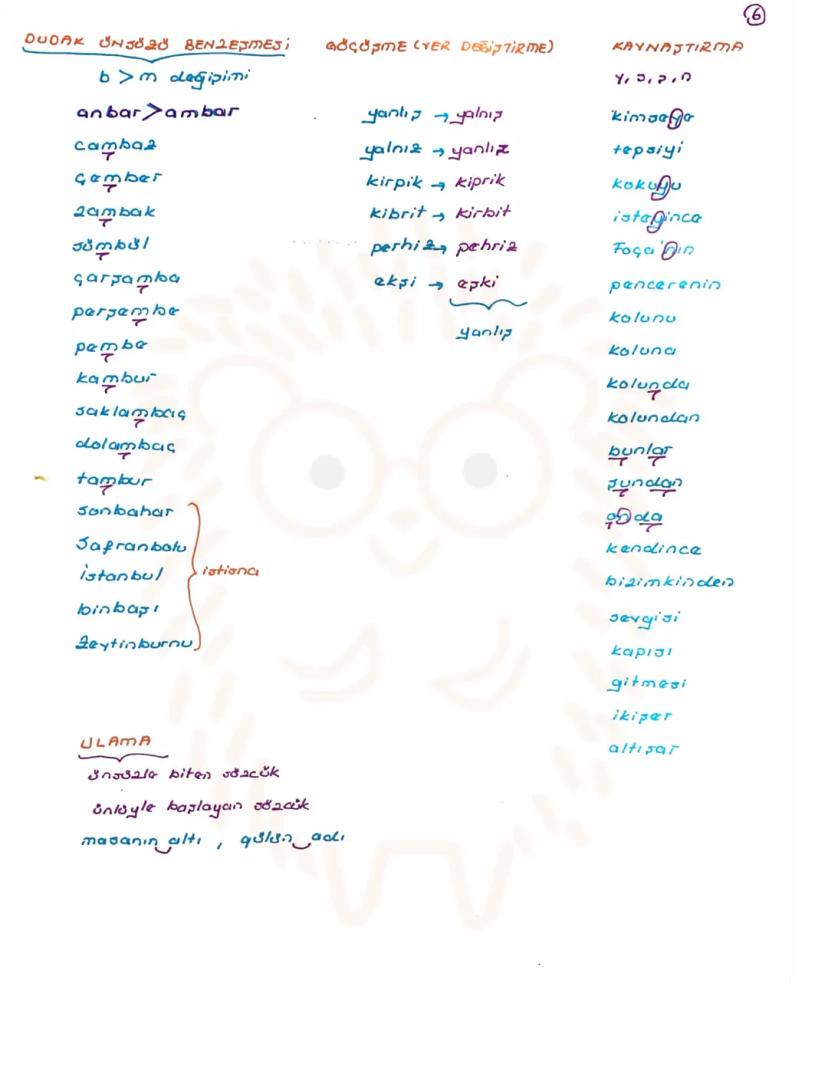 6
DUDAK ÜNSÜZÜ BENZEŞMESİ
b > m değişimi
anbar > ambar
cambaz
çember
zambak
sümbül
çarşamba
perşembe
pembe
kambur
saklambaç
dolambaç
tambur
sonbahar
Safranbolu
İstanbul
binbaşı
Zeytinburnu
istisna
ULAMA
ünsüzle biten sözcük
ünlüyle başlayan sözcük
masanın altı, gülün adı
GÖÇÜŞME (YER DEĞİŞTİRME)
yanlış → yalnış
yalnız → yanlız
kirpik → kiprik
kibrit → kirbit
perhiz → pehriz
ekşi → eşki
yanlış
KAYNAŞTIRMA
y, s, ş, n
kimseye
tepsiyi
kokuyu
isteyince
Foça'nın
pencerenin
kolunu
koluna
kolunda
kolundan
bunlar
şundan
onda
kendince
bizimkinden
sevgisi
kapısı
gitmesi
ikişer
altışar